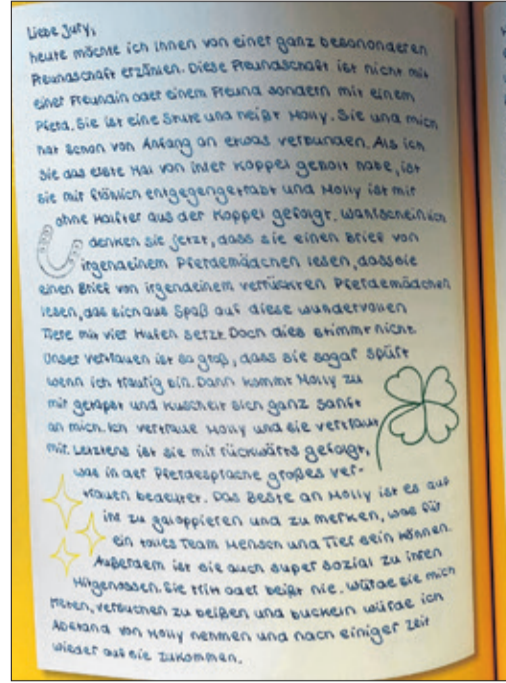 Liebe Jury,
heute möchte ich Ihnen von einer ganz besononderen
Freundschaft erzählen. Diese Freundschaft ist nicht mit
einer Freundin oder einem Freund sondern mit einem
Pferd. Sie ist eine Stute und heißt Holly. Sie und mich
hat schon von Anfang an etwas verbunden. Als ich
sie das erste Mal von ihrer Koppel geholt habe, ist
sie mir fröhlich entgegengetrabt und Holly ist mir
ohne Halfter aus der Koppel gefolgt. Wahrscheinlich
denken sie jetzt, dass sie einen Brief von
irgendeinem Pferdemädchen lesen, dass sie
einen Brief von irgendeinem verrückten Pferdemädchen
lesen, das sich aus Spaß auf diese wundervollen
Tiere mit vier Hufen setzt. Doch dies stimmt nicht.
Unser Vertrauen ist so groß, dass sie sogar spürt
wenn ich traurig bin. Dann kommt Holly zu
mir getrabt und kuschelt sich ganz sanft
an mich. Ich vertraue Holly und sie vertraut
mir. Letztens ist sie mir rückwärts gefolgt,
was in der Pferdesprache großes Ver-
trauen bedeutet. Das Beste an Holly ist es auf
ihr zu galoppieren und zu merken, was für
ein tolles Team Mensch und Tier sein können.
Außerdem ist sie auch super sozial zu ihren
Mitgenossen. Sie tritt oder beißt nie. Würde sie mich
treten, versuchen zu beißen und buckeln würde ich
Abstand von Holly nehmen und nach einiger Zeit
wieder auf sie zukommen.